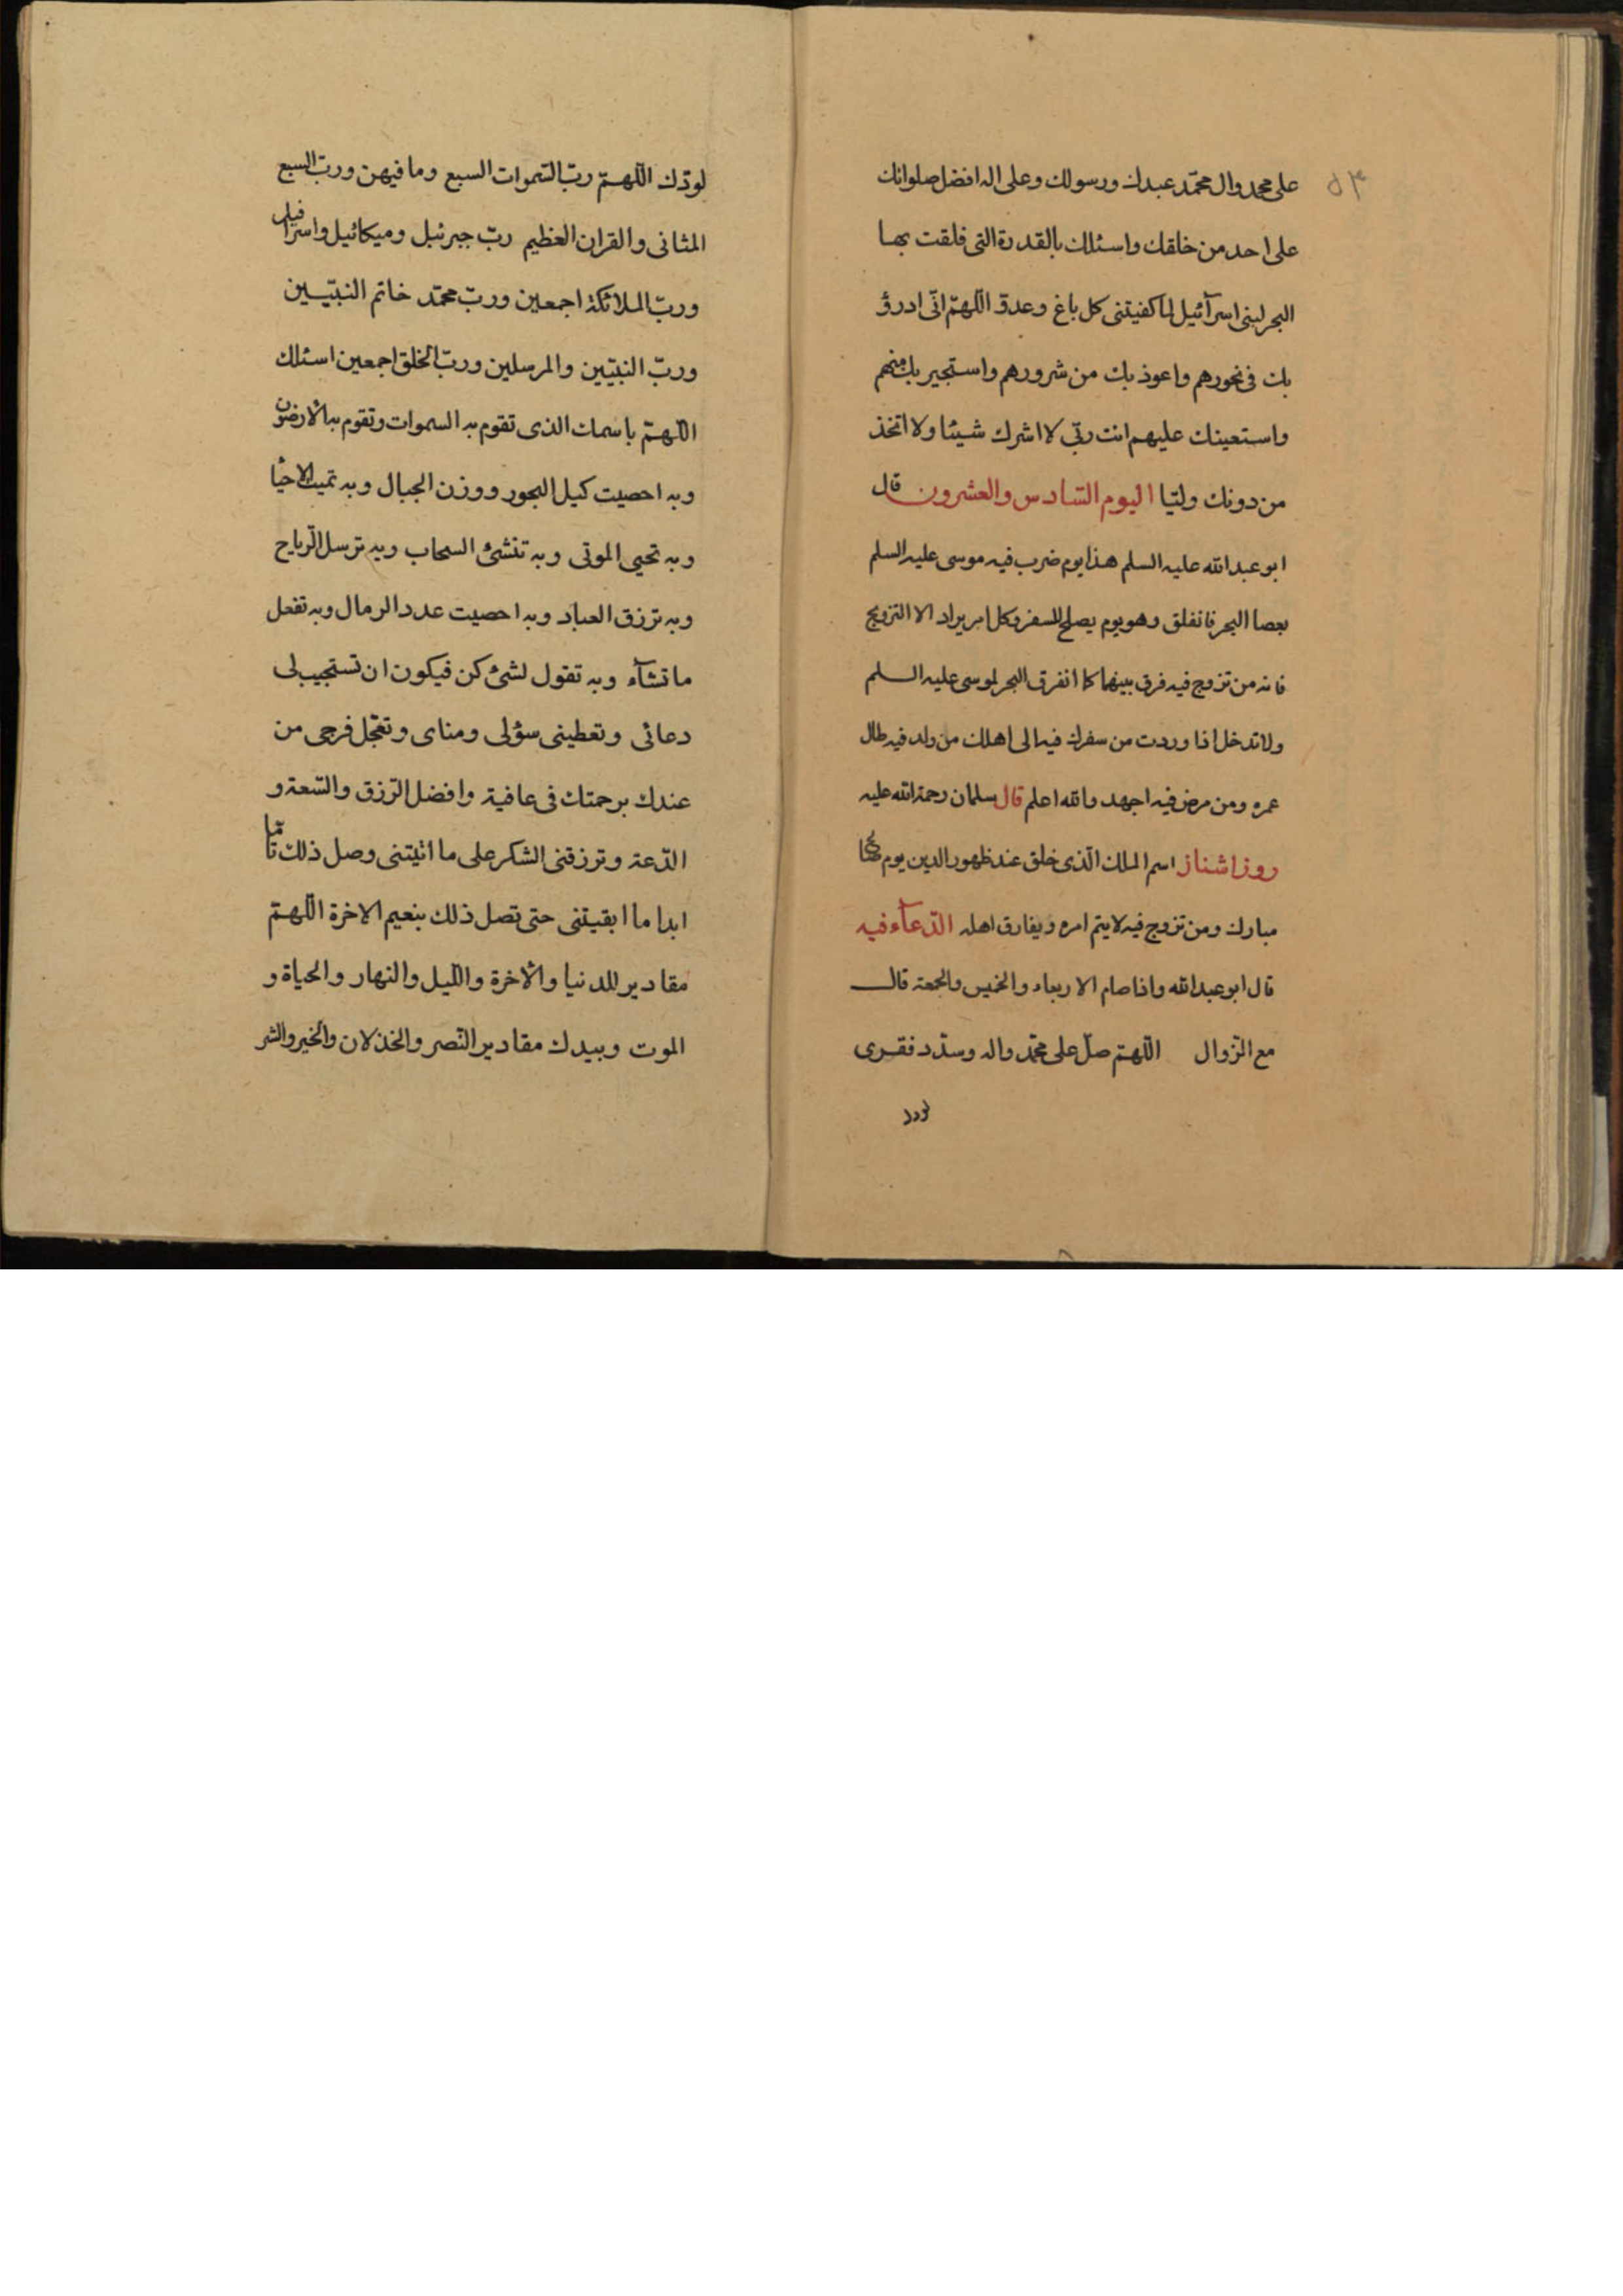 ٥٣
على محمد وال محمّد عبدك ورسولك وعلى اله افضل صلواتك
على احد من خلقك واسئلك بالقدرة التى فلقت بها
البحر لبنى اسرآئيل لما كفيتنى كل باغ وعدوّ اللّهمّ انّى ادرؤ
بك فى نحورهم واعوذ بك من شرورهم واستجير بك منهم
واستعينك عليهم انت ربّى لا اشرك شيئا ولا اتخذ
من دونك وليّا اليوم السّادس والعشرون قال
ابو عبد الله عليه السلم هذا يوم ضرب فيه موسى عليه السلم
بعصا البحر فانفلق وهو يوم يصلح للسفر وكل امر يراد الا التزويج
فانه من تزوج فيه فرق بينهما كما انفرق البحر لموسى عليه السلم
ولا تدخل اذا وردت من سفرك فيه الى اهلك من ولد فيه طال
عمره ومن مرض فيه اجهد والله اعلم قال سلمان رحمة الله عليه
روز اشناز اسم الملك الّذى خلق عند ظهور الدين يوم
مبارك ومن تزوج فيه لا يتم امره ويفارق اهله الدّعآء فيه
قال ابو عبد الله واذا صام الاربعاء والخميس والجمعة قال
مع الزّوال اللّهمّ صلّ على محمّد واله وسدّد فقرى
لودّك اللّهمّ ربّ السّموات السبع وما فيهن وربّ السبع
المثانى والقران العظيم ربّ جبرئيل وميكائيل واسرافيل
وربّ الملائكة اجمعين وربّ محمّد خاتم النبيّين
وربّ النبيّين والمرسلين وربّ الخلق اجمعين اسئلك
اللّهمّ باسمك الذى تقوم به السموات وتقوم به الارضون
وبه احصيت كيل البحور ووزن الجبال وبه تميت الاحيآ
وبه تحيى الموتى وبه تنشئ السحاب وبه ترسل الرّياح
وبه ترزق العباد وبه احصيت عدد الرمال وبه تفعل
ما تشآء وبه تقول لشئ كن فيكون ان تستجيب لى
دعائى وتعطينى سؤلى ومناى وتعجّل فرجى من
عندك برحمتك فى عافية وافضل الرّزق والسّعة و
الدّعة وترزقنى الشكر على ما اتيتنى وصل ذلك تامّا
ابدا ما ابقيتنى حتى تصل ذلك بنعيم الاخرة اللّهمّ
مقادير للدنيا والاخرة واللّيل والنهار والحياة و
الموت وبيدك مقادير النّصر والخذلان والخير والشر